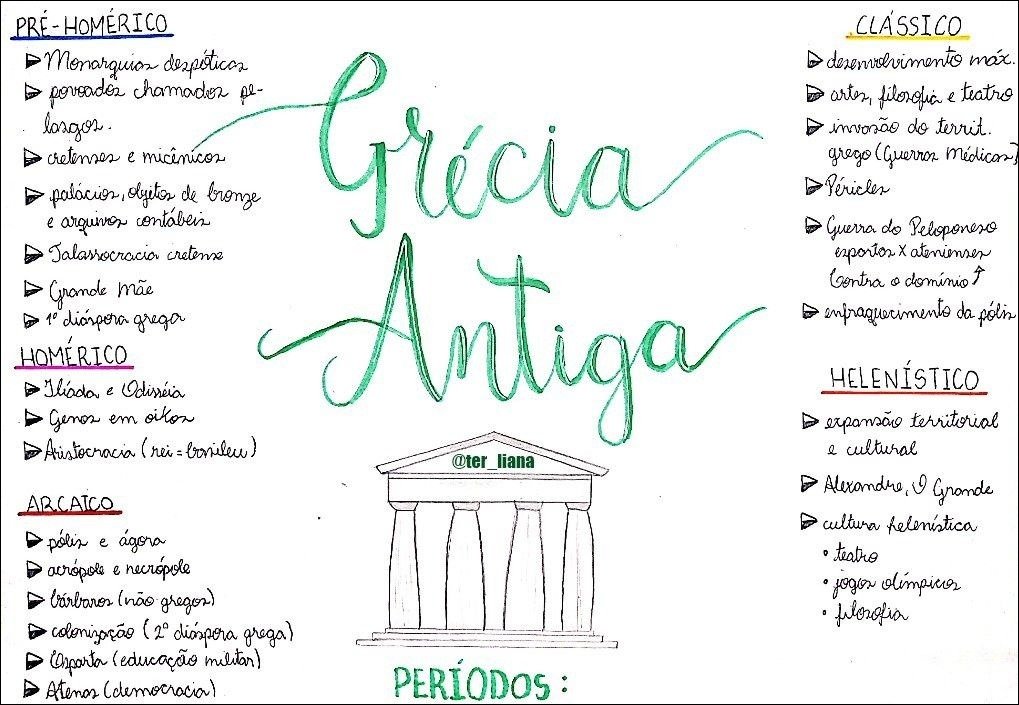 PRÉ-HOMÉRICO
Monarquias despóticas
povoados chamados pe-
lasgos.
cretenses e micênicos
palácios, objetos de bronze
e arquivos contábeis
Talassocracia cretense
Grande Mãe
1º diáspora grega
HOMÉRICO
Ilíada e Odisséia
Genos em oikos
Aristocracia (rei = basileu)
ARCAICO
pólis e ágora
acrópole e necrópole
bárbaros (não gregos)
colonização (2º diáspora grega)
Esparta (educação militar)
Atenas (democracia)
Grécia
Antiga
@ter_liana
PERÍODOS:
CLÁSSICO
desenvolvimento máx.
artes, filosofia e teatro
invasão do territ.
grego (Guerras Médicas)
Péricles
Guerra do Peloponeso
espartos x atenienses
Contra o domínio ↑
enfraquecimento da pólis
HELENÍSTICO
expansão territorial
e cultural
Alexandre, O Grande
cultura helenística
• teatro
• jogos olímpicos
• filosofia